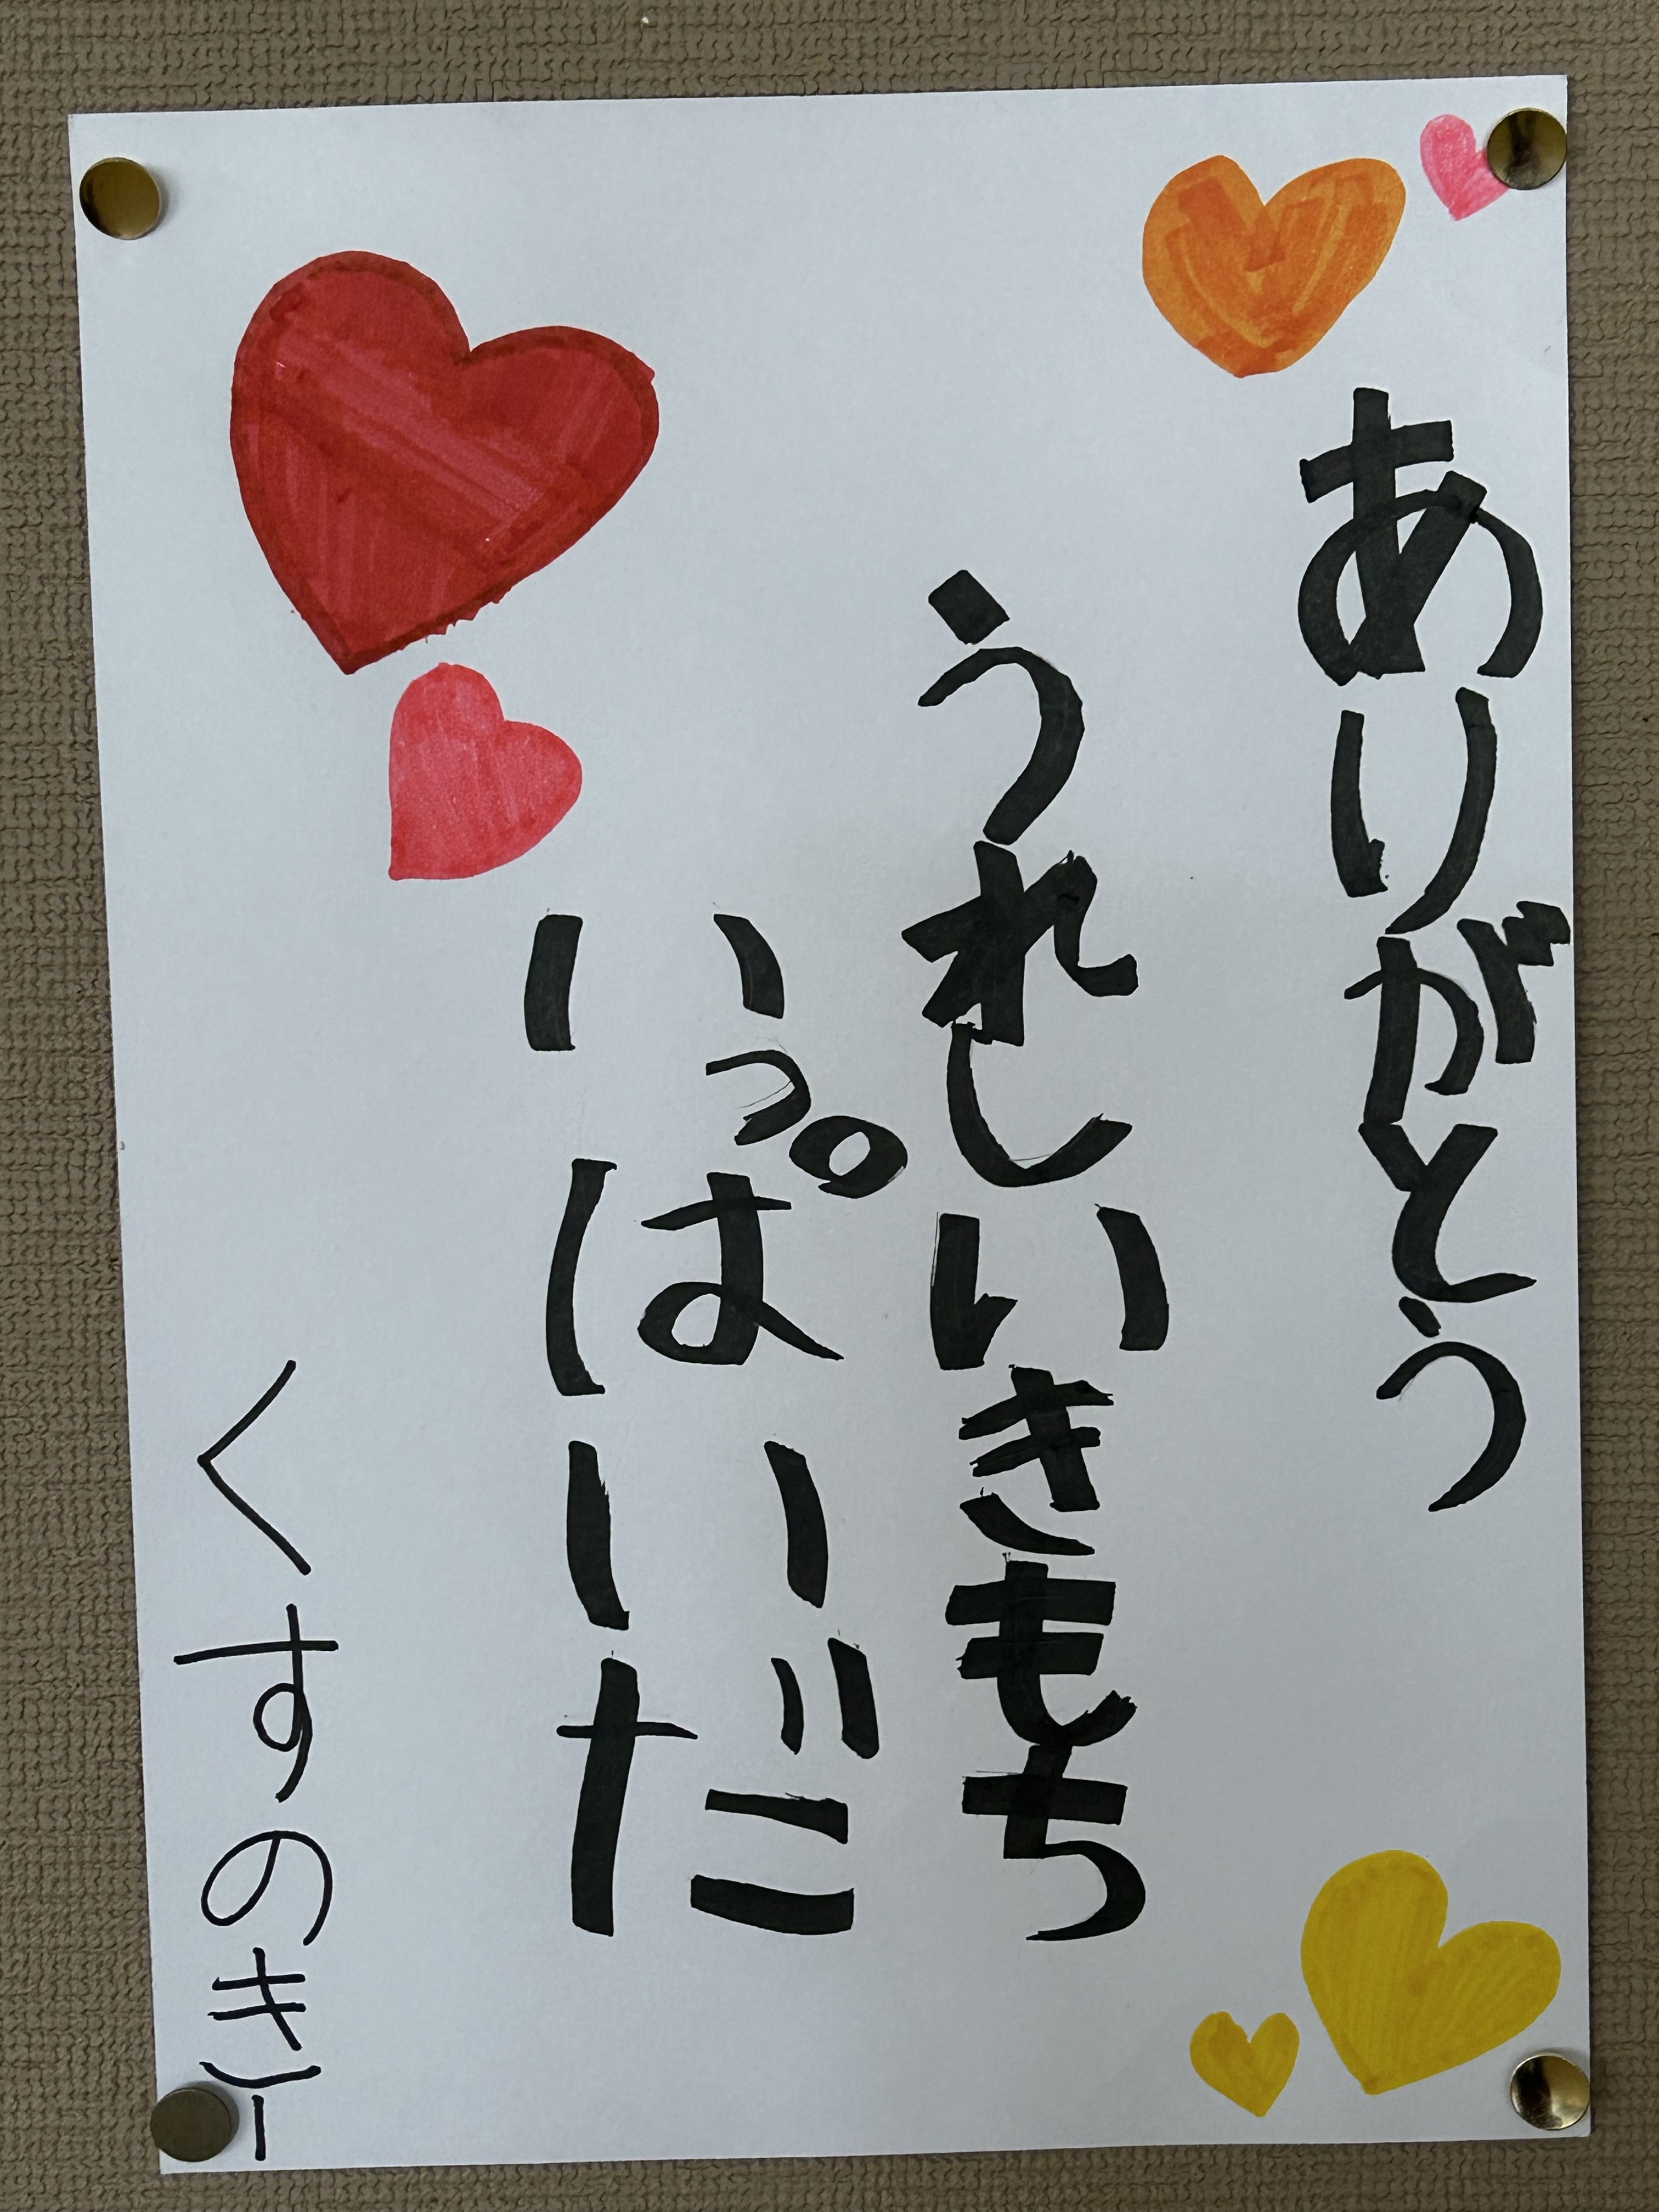 ありがとう
うれしいきもち
いっぱいだ
くすのき